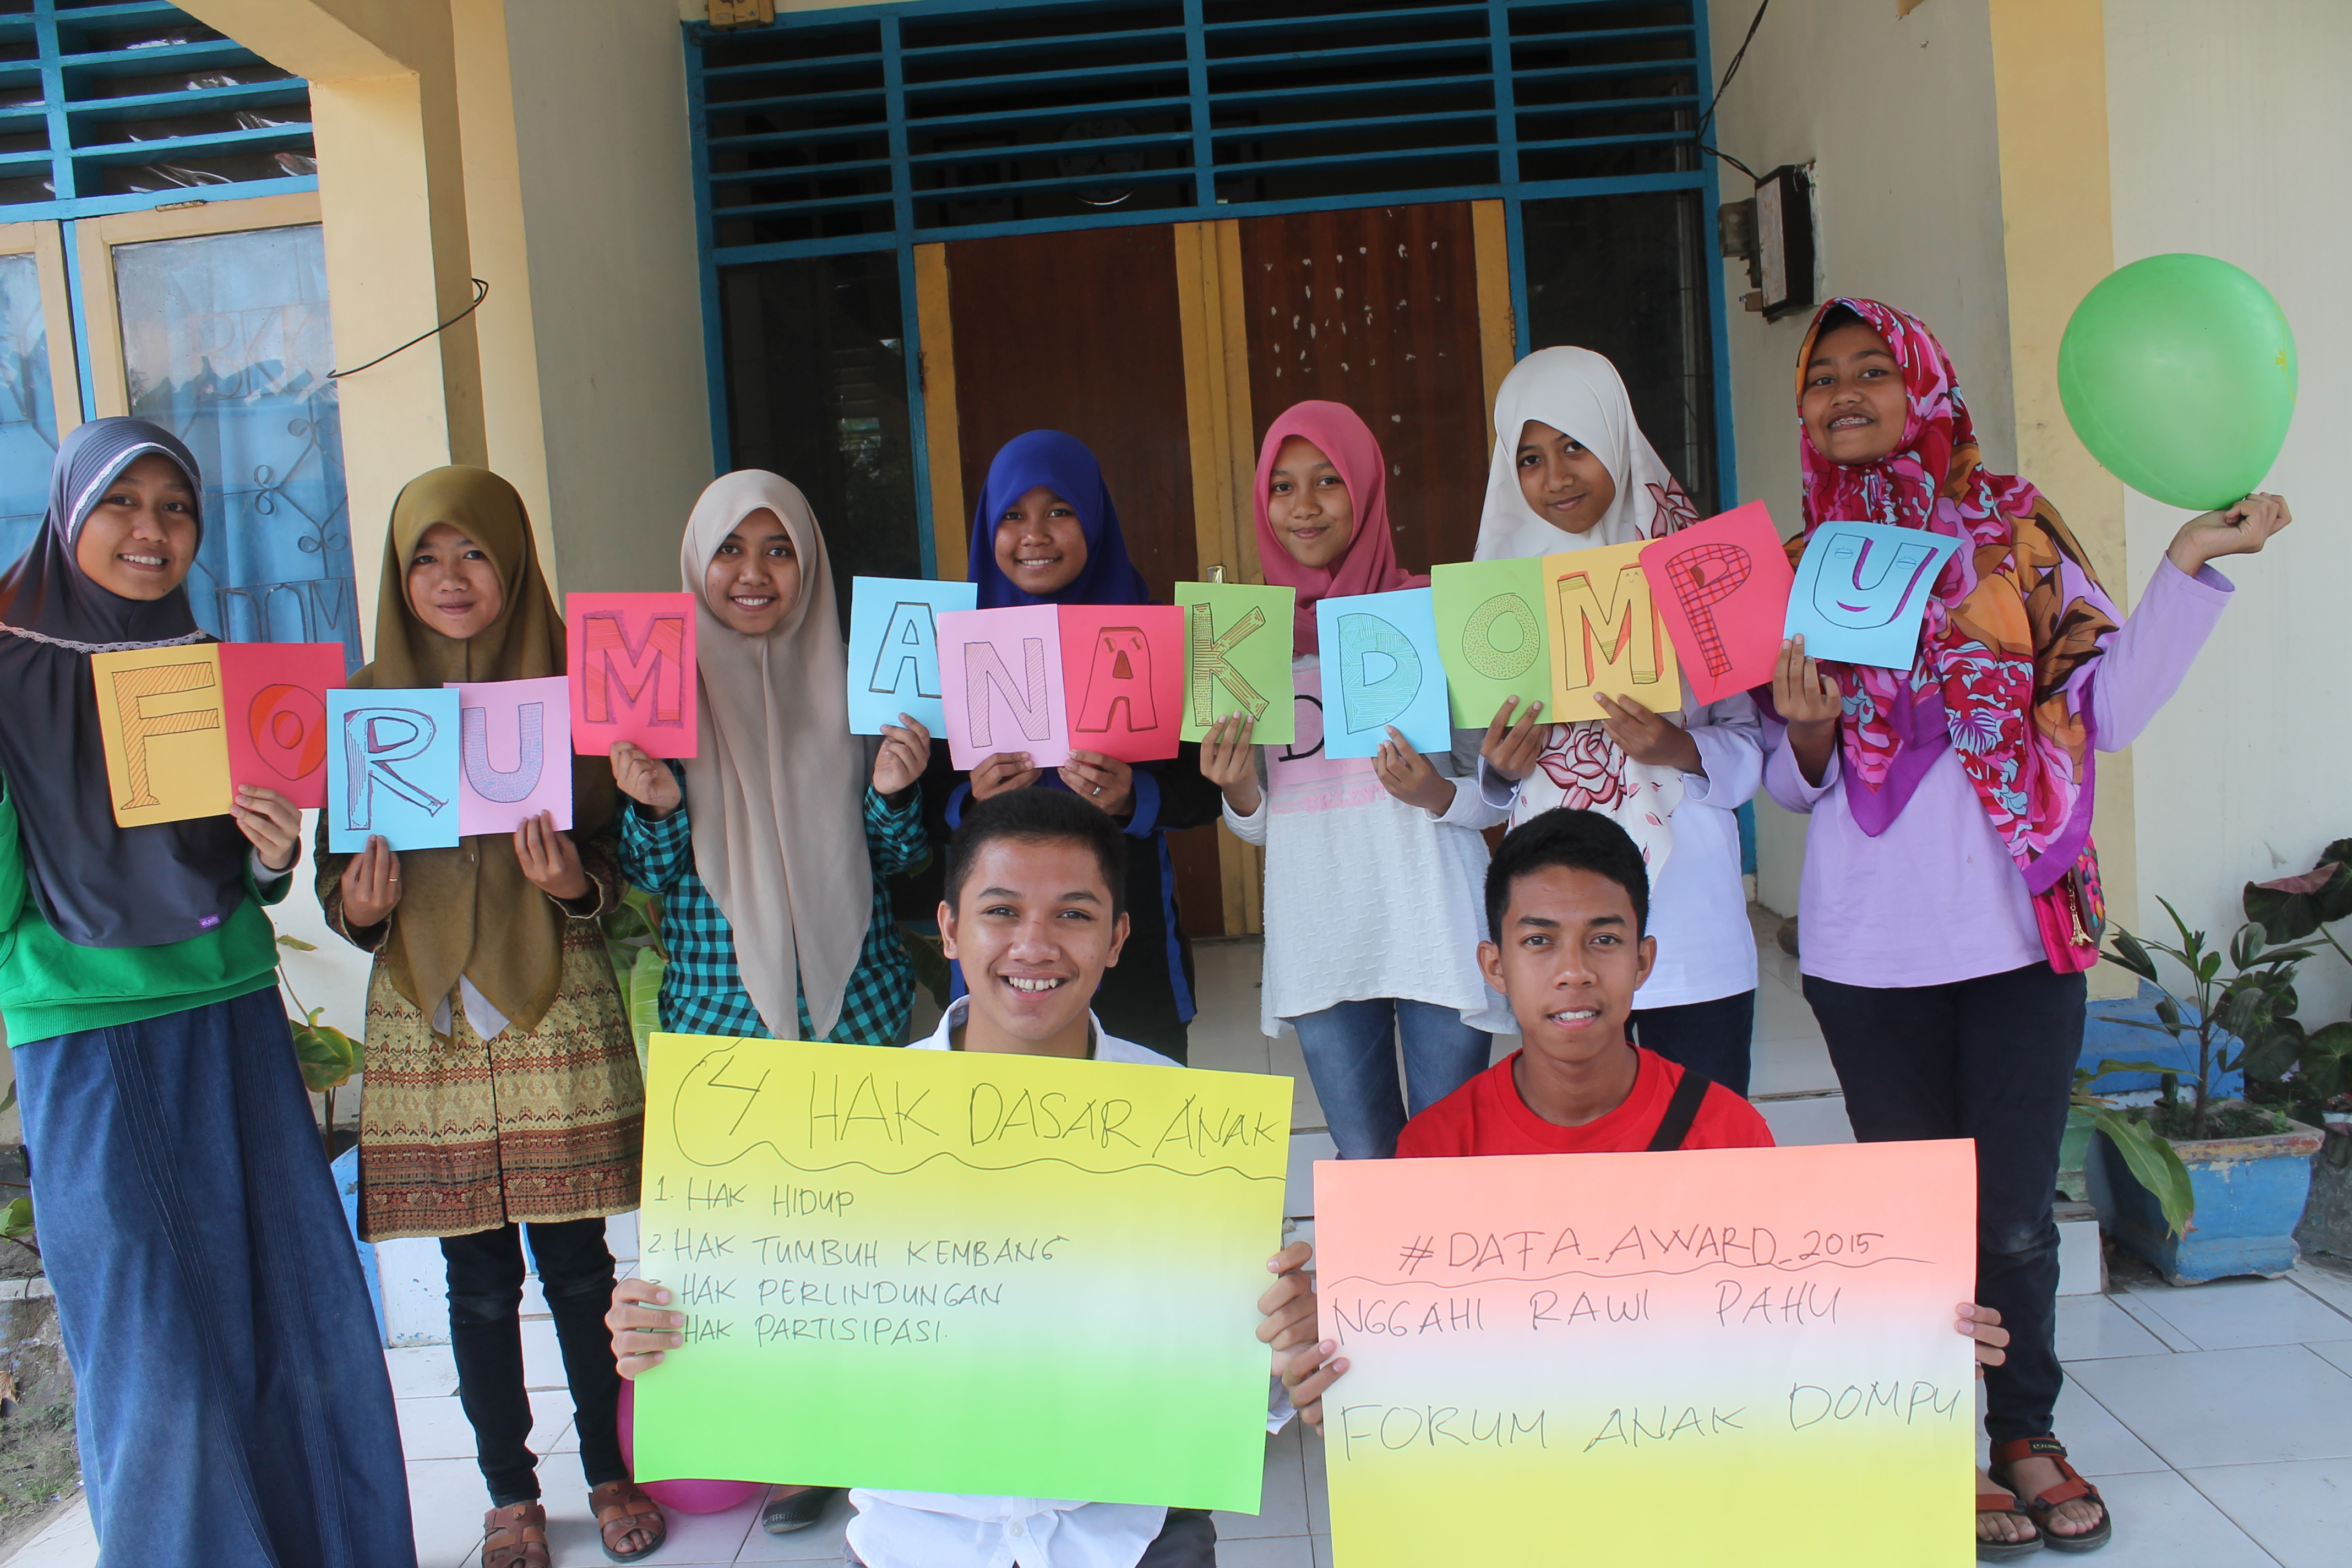 FORUM ANAK DOMPU
4 HAK DASAR ANAK
1. HAK HIDUP
2. HAK TUMBUH KEMBANG
3. HAK PERLINDUNGAN
HAK PARTISIPASI.
#DAFA_AWARD_2015
NGGAHI RAWI PAHU
FORUM ANAK DOMPU